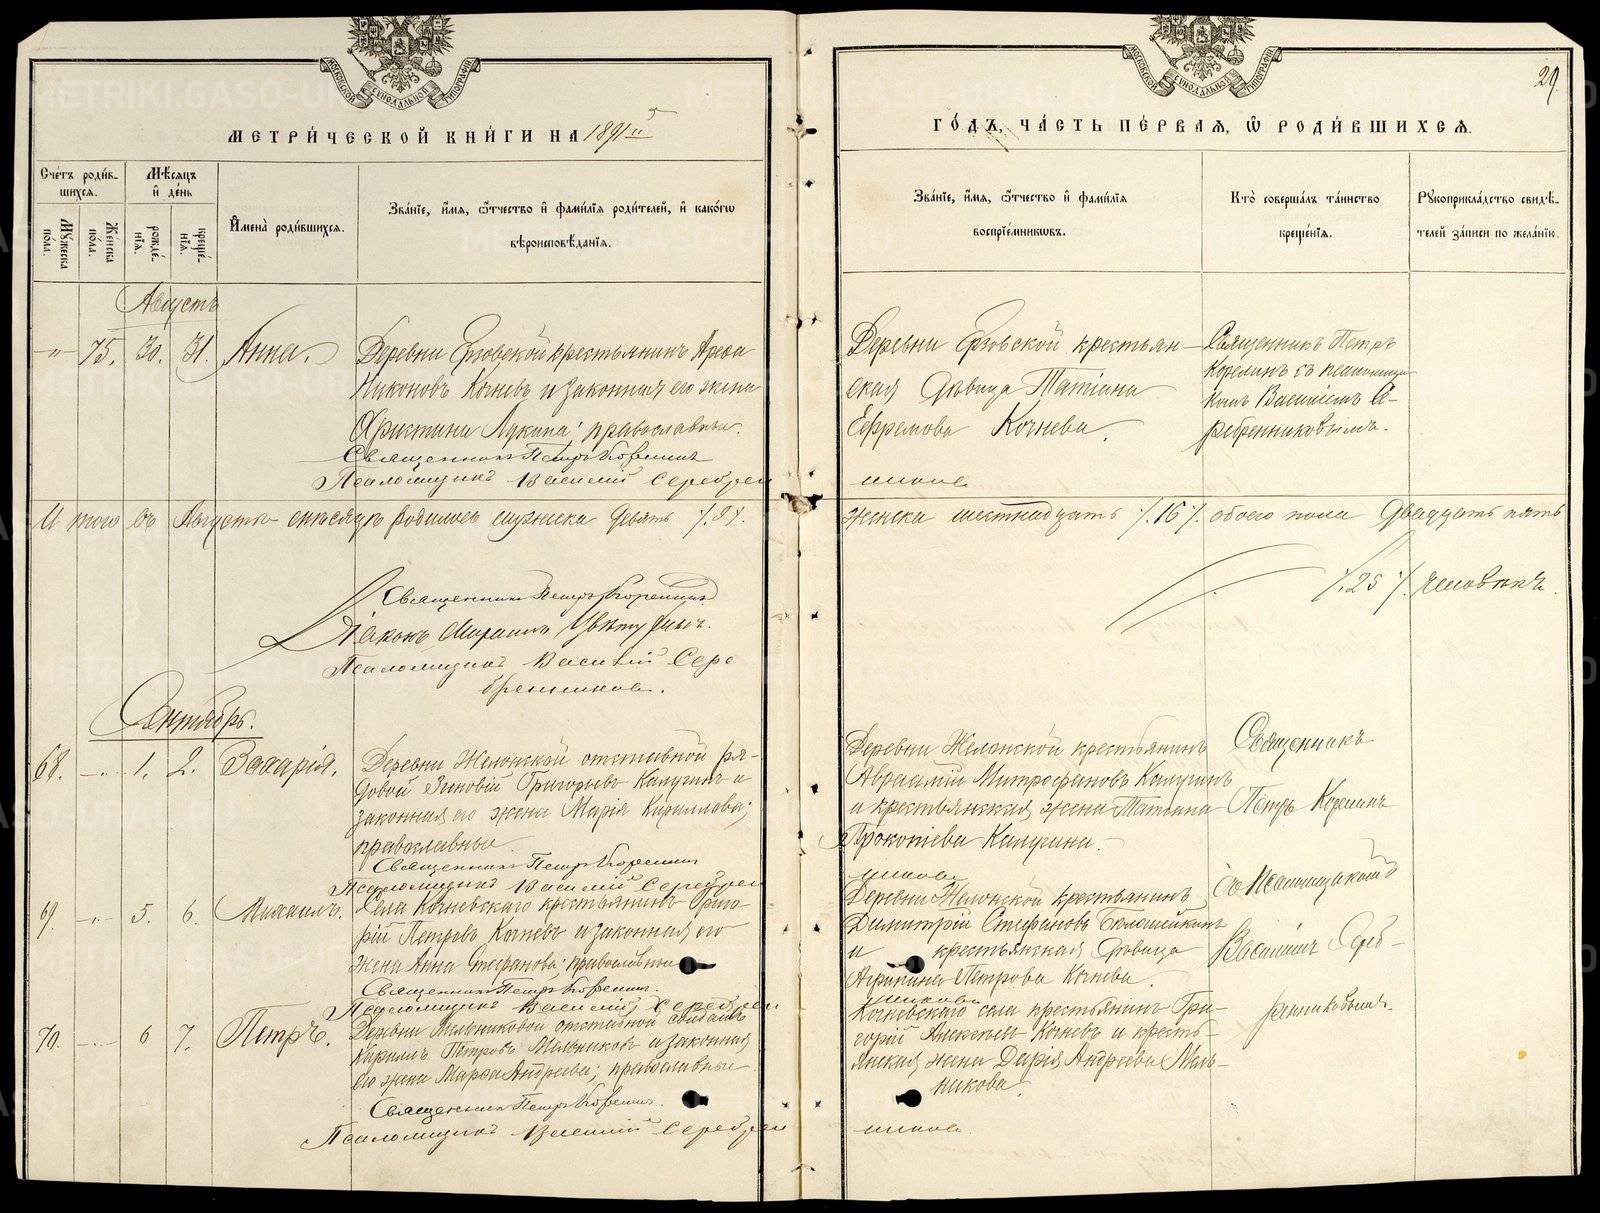 МОСКОВСКОЙ СѴНОДАЛЬНОЙ ТИПОГРАФІИ
МОСКОВСКОЙ СѴНОДАЛЬНОЙ ТИПОГРАФІИ
29.
МЕТРИ́ЧЕСКОЙ КНИ́ГИ НА 1891
ГО́ДЪ, ЧА́СТЬ ПЕ́РВАЯ, Ѽ РОДИ́ВШИХСЯ.
Сче́тъ роди́в-
шихся.
Мꙋ́жеска по́ла.
Же́нска по́ла.
Мѣ́сяцъ
и҆ де́нь
рожде́-
нїя.
креще́-
нїя.
И҆мена̀ роди́вшихся.
Зва́нїе, и҆́мя, ѻ҆́тчество и҆ фами́лїя роди́телей, и҆ како́гѡ
вѣроисповѣ́данїя.
Зва́нїе, и҆́мя, ѻ҆́тчество и҆ фами́лїя
воспрїе́мникѡвъ.
Кто̀ соверша́лъ та́инство
креще́нїя.
Рꙋкоприкла́дство свидѣ́-
телей за́писи по жела́нїю.
Августъ
-"- 75. 30. 31. Анна.
Деревни Ерзовской крестьянинъ Ареѳа
Никоновъ Кочневъ и законная его жена
Христина Лукина; православные.
Священникъ Петръ Корелинъ
Псаломщикъ Василій Серебрен
Деревни Ерзовской крестьян-
ская дѣвица Татіана
Ефремова Кочнева.
никовъ
Священникъ Петръ
Корелинъ съ псаломщи-
комъ Василіемъ Се-
ребренниковымъ.
Итого въ Августѣ мѣсяцѣ родилось мужеска девять /.9/.
женска шестнадцать /.16/. обоего пола двадцать пять
/.25./. человѣкъ.
Священникъ Петръ Корелинъ
Діаконъ Михаилъ
Псаломщикъ Василій Сере
бренниковъ.
Сентябрь.
68. -"- 1. 2. Захарія.
Деревни Желонской отставной ря-
довой Зиновій Григорьевъ Калугинъ и
законная его жена Марія Кириллова;
православные
Священникъ Петръ Корелинъ
Псаломщикъ Василій Серебрен
Деревни Желонской крестьянинъ
Авраамій Митрофановъ Калугинъ
и крестьянская жена Татіана
Прокопіева Калугина.-
никовъ
Священникъ
Петръ Корелинъ
съ Псаломщикомъ
Василіемъ Сереб-
ренниковымъ.
69. -"- 5. 6. Михаилъ.
Села Кочневскаго крестьянинъ Григо-
рій Петровъ Кочневъ и законная его
жена Анна Стефанова; православные
Священникъ Петръ Корелинъ.
Псаломщикъ Василій Серебрен
Деревни Желонской крестьянинъ
Димитрій Стефановъ
и крестьянская дѣвица
Агрипина Петрова Кочнева.
никовъ
70. -"- 6 7. Петръ.
Деревни Мельниковой отставной солдатъ
Кириллъ Петровъ Мельниковъ и законная
его жена Марѳа Андреева; православные
Священникъ Петръ Корелинъ.
Псаломщикъ Василій Серебрен
Кочневскаго села крестьянинъ Гри-
горій Алексѣевъ Кочневъ и кресть-
янская жена Дарія Андреева Мель-
никова.
никовъ.